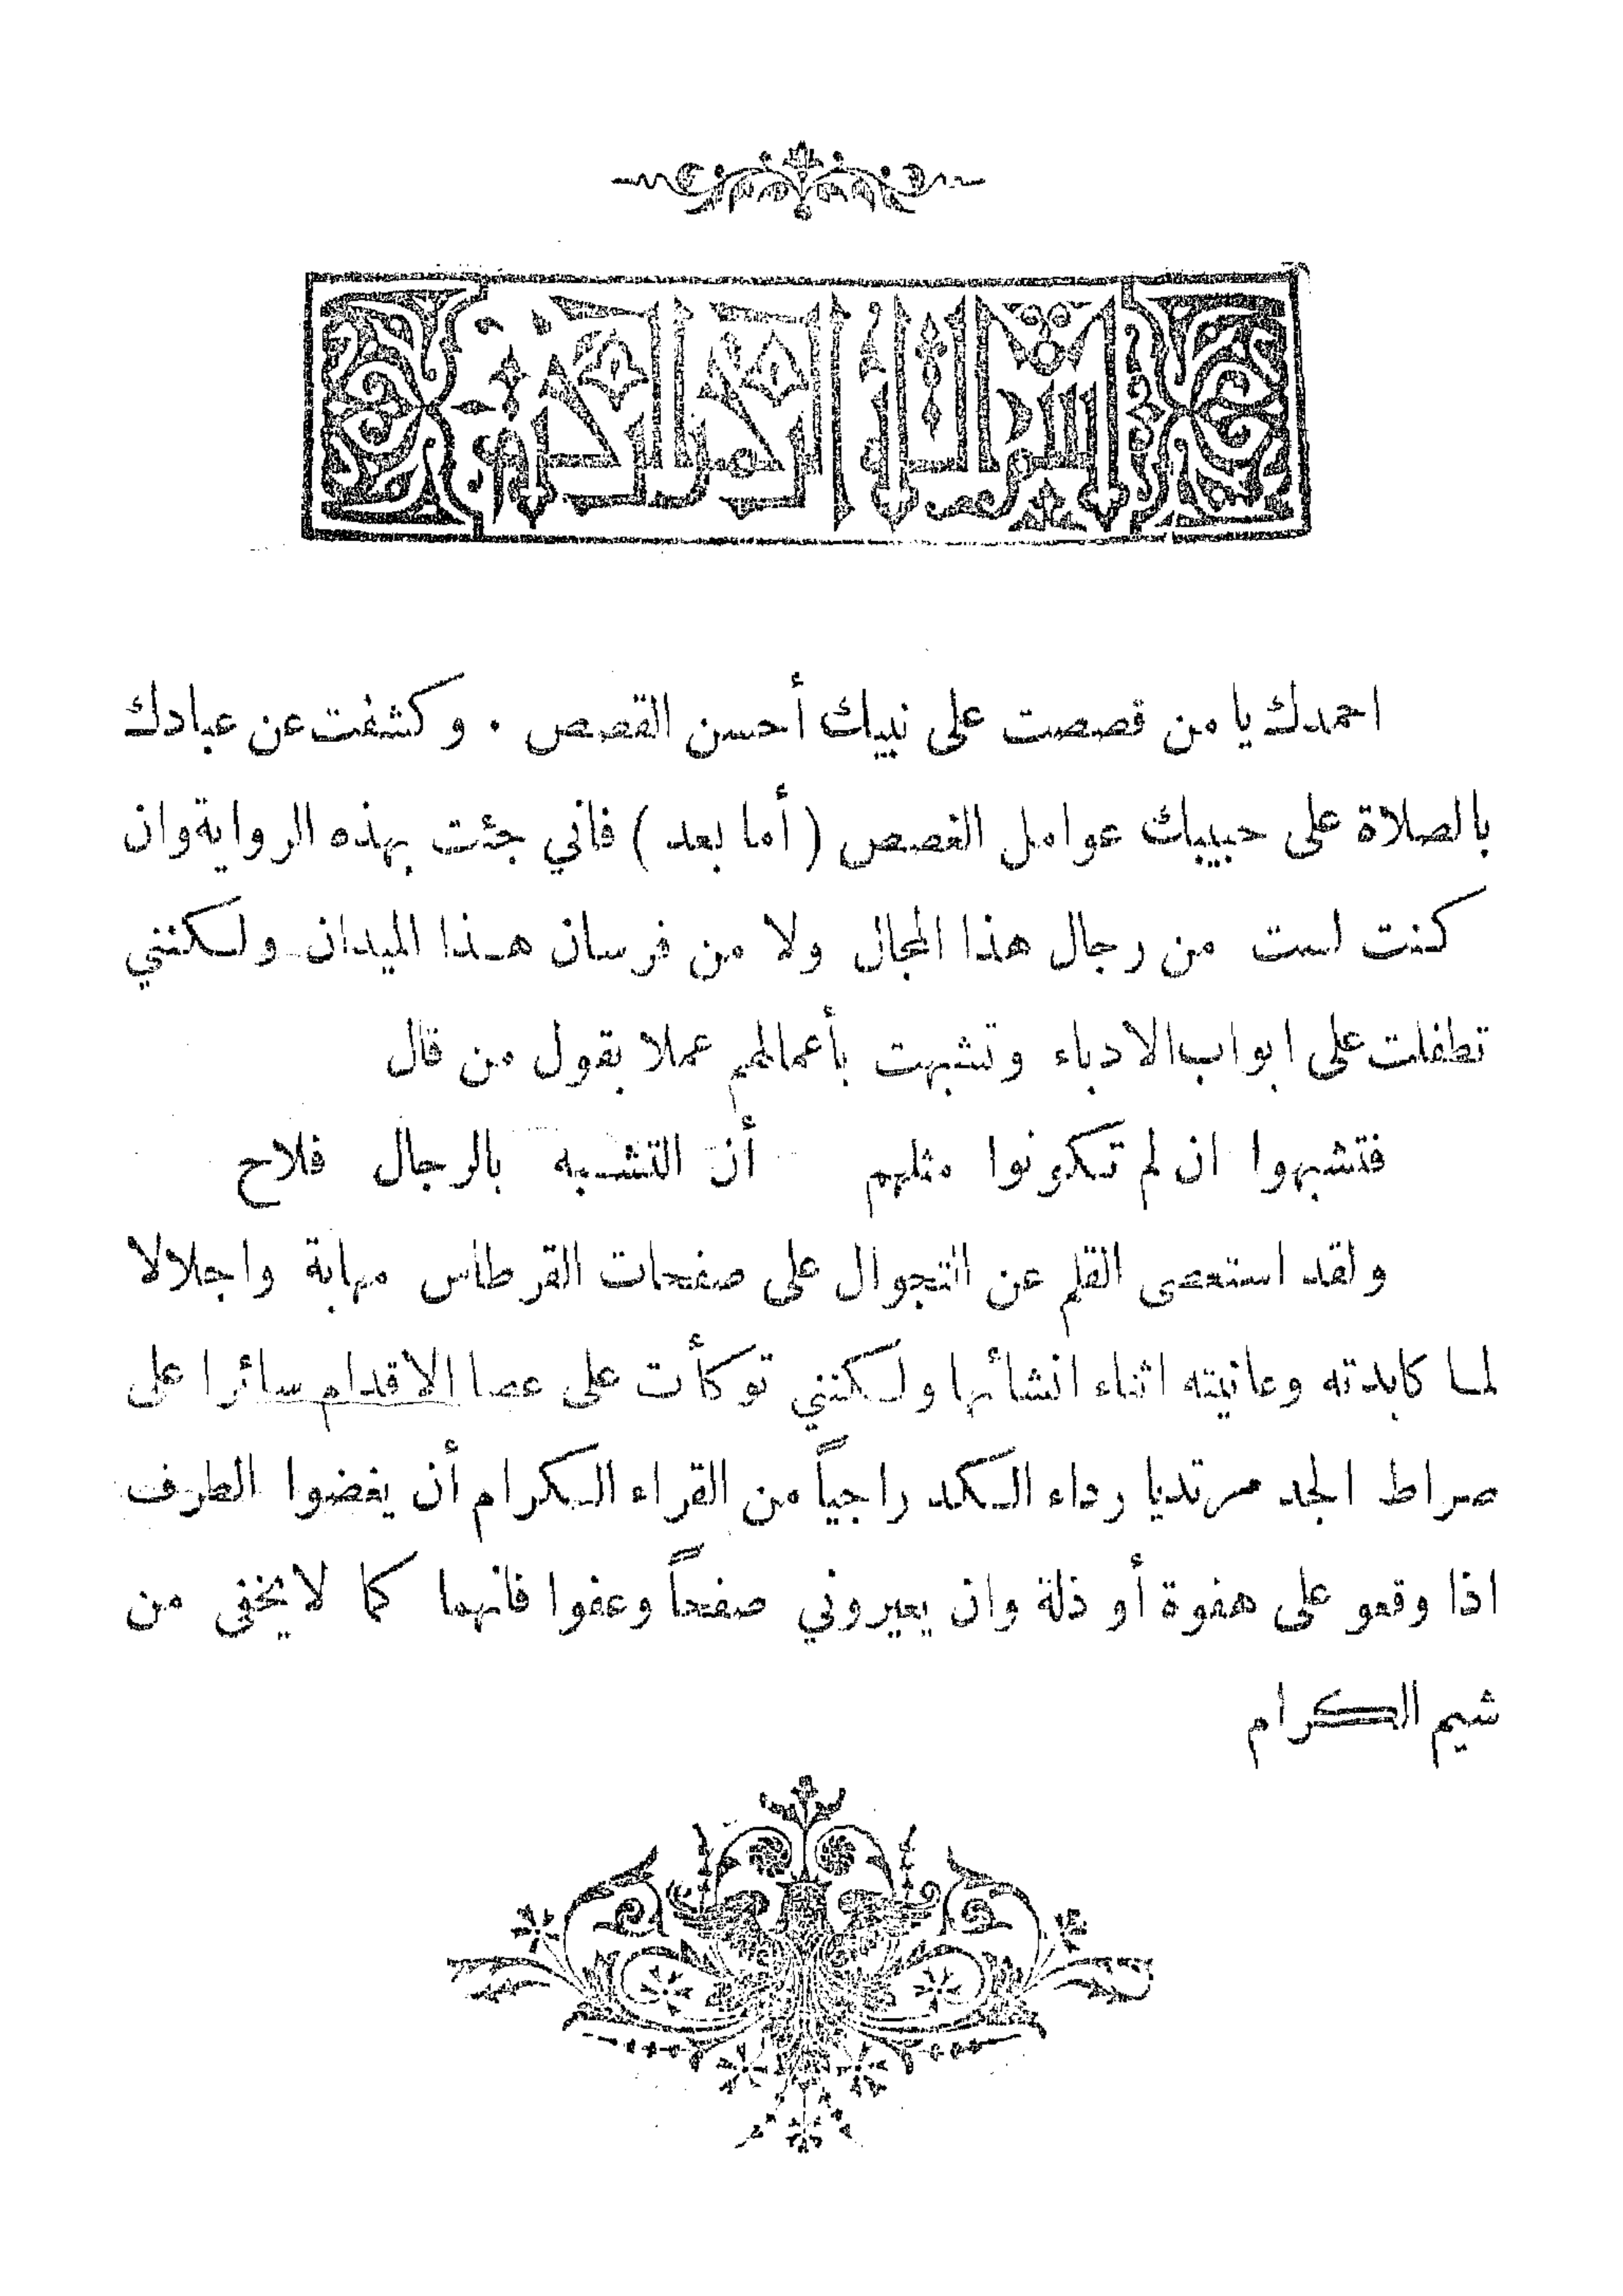 بسم الله الرحمن الرحيم
احمدك يا من قصصت على نبيك أحسن القصص . وكشفت عن عبادك
بالصلاة على حبيبك عوامل الغصص ( أما بعد ) فاني جئت بهذه الرواية وان
كنت لست من رجال هذا المجال ولا من فرسان هذا الميدان ولكنني
تطفلت على ابواب الادباء وتشبهت بأعمالهم عملا بقول من قال
فتشبهوا ان لم تكونوا مثلهم أن التشبه بالرجال فلاح
ولقد استعصى القلم عن التجوال على صفحات القرطاس مهابة واجلالا
لما كابدته وعانيته اثناء انشائها ولكنني توكأت على عصا الاقدام سائرا على
صراط الجد مرتديا رداء الكد راجياً من القراء الكرام أن يغضوا الطرف
اذا وقعو على هفوة أو ذلة وان يعيروني صفحاً وعفوا فانهما كما لا يخفى من
شيم الكرام